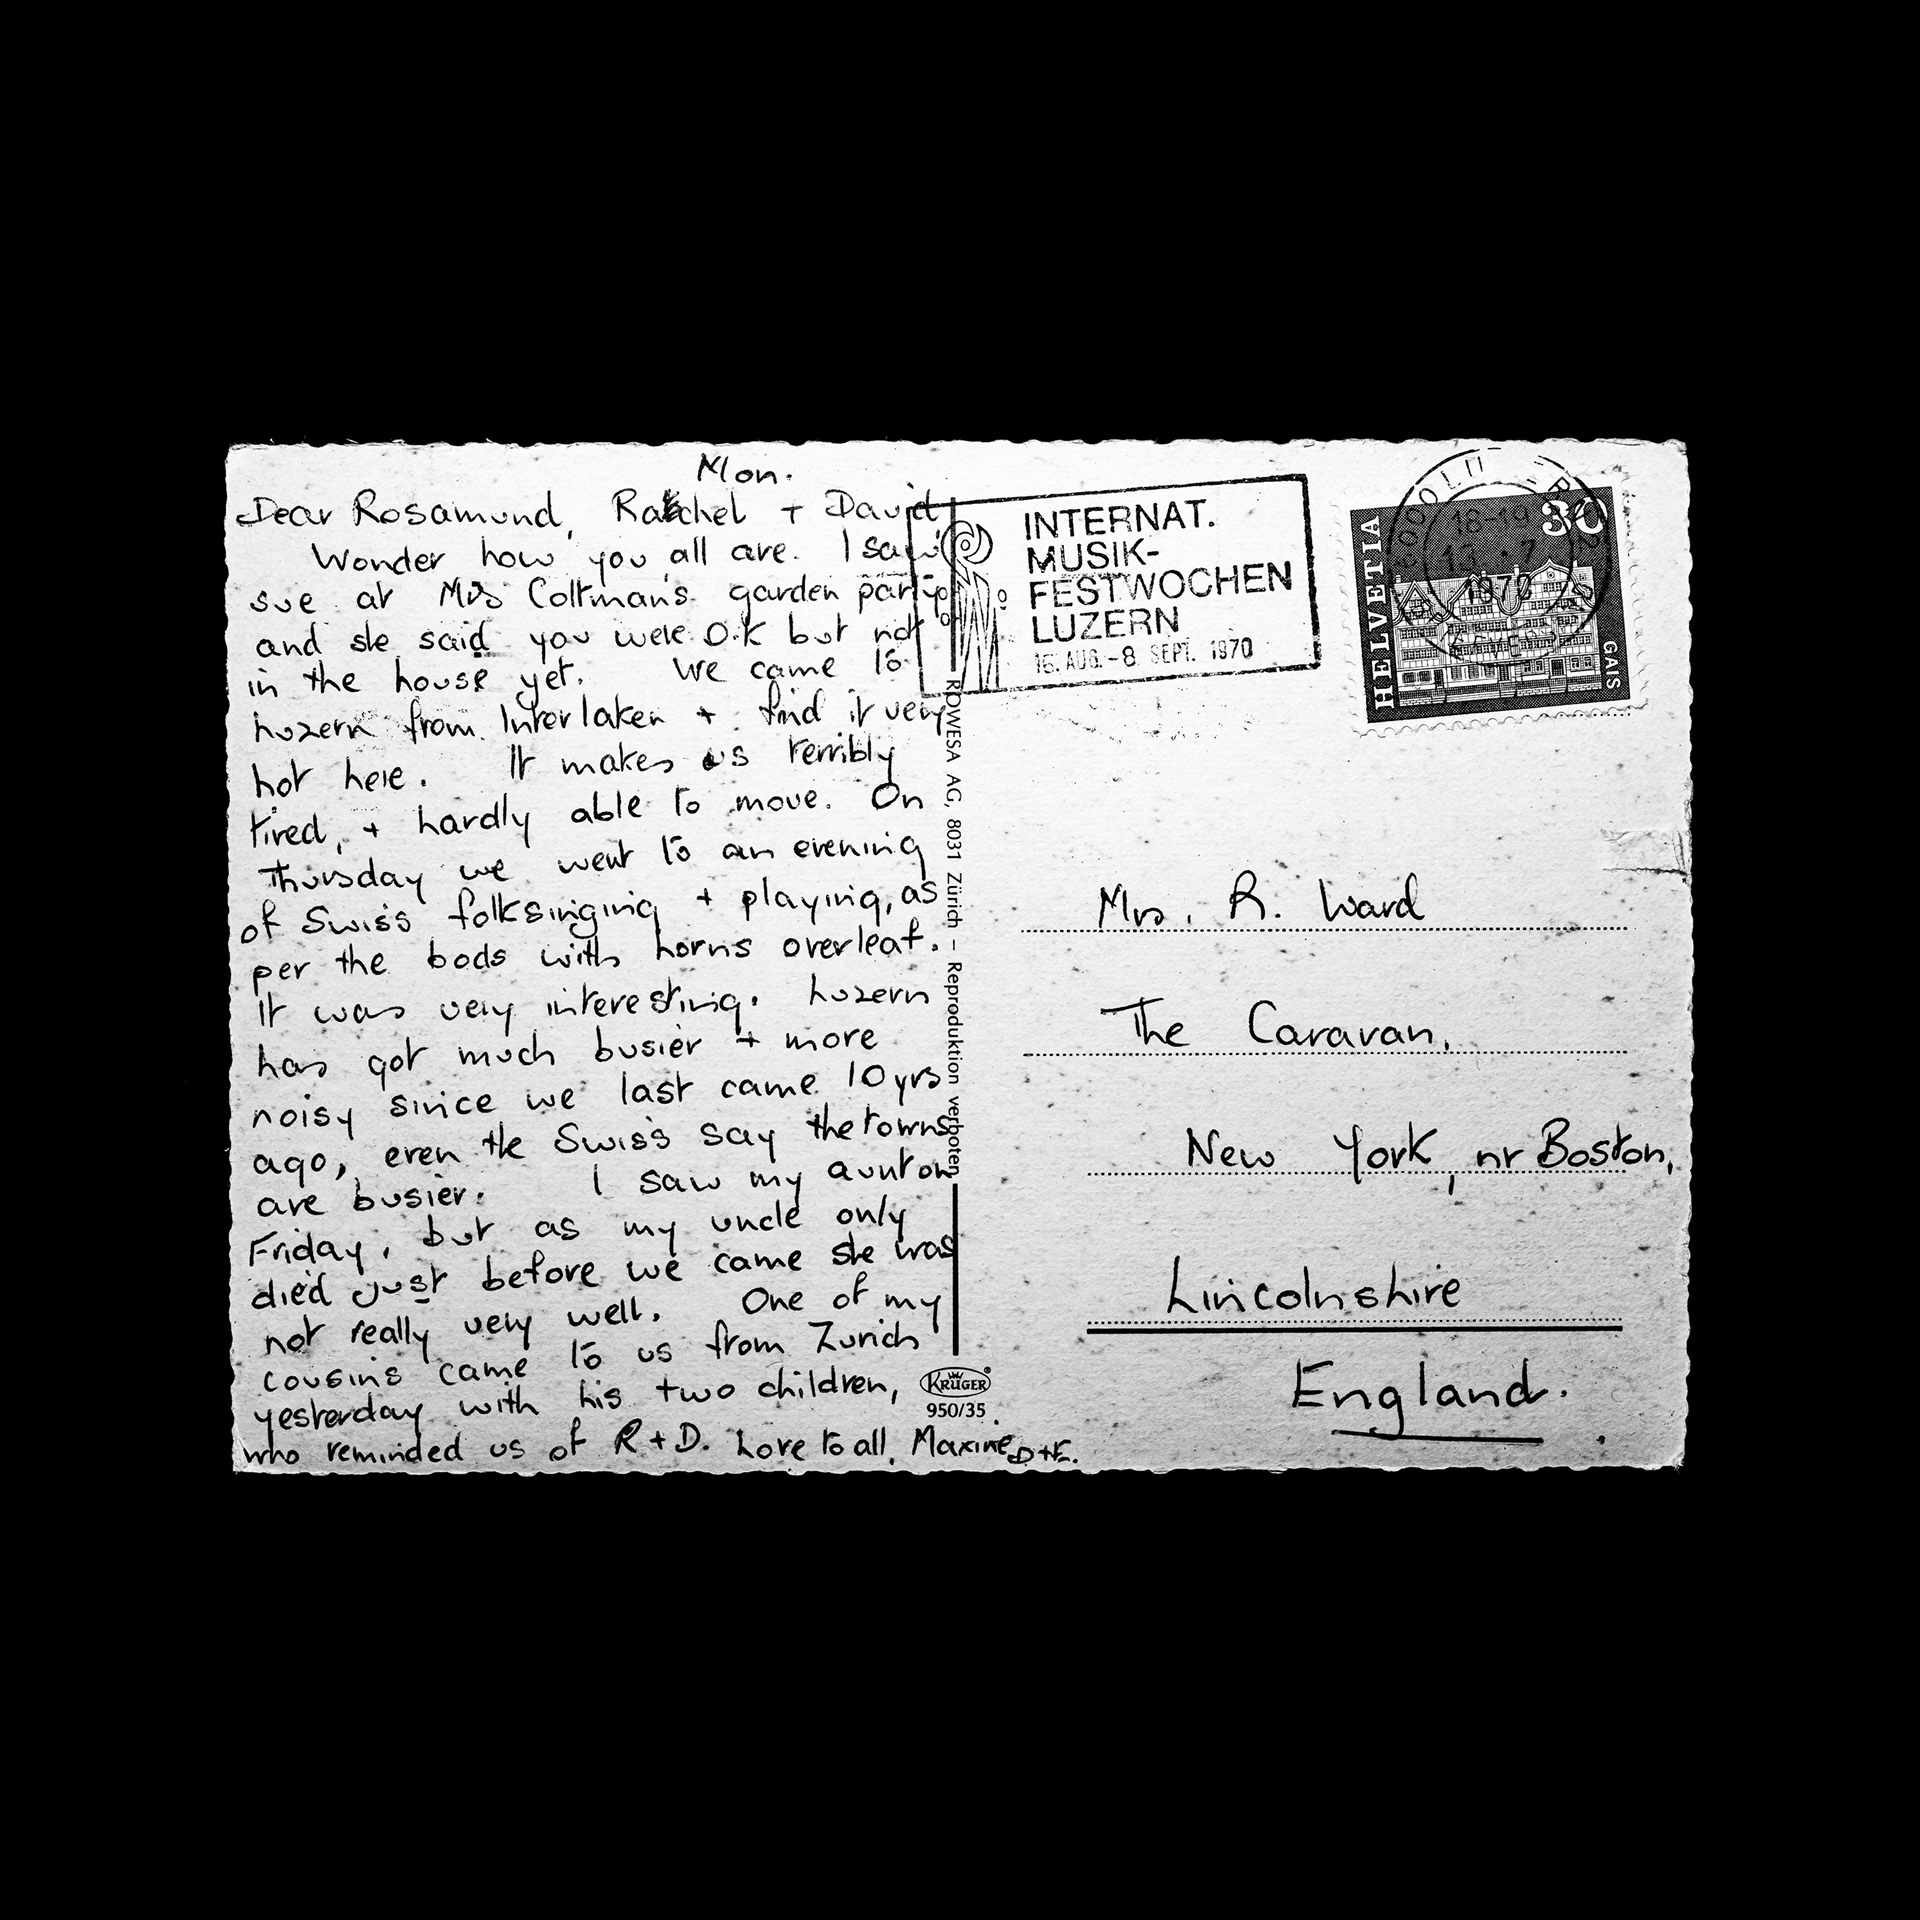 Mon.
Dear Rosamund, Rachel + David
Wonder how you all are. I saw
sue at Mrs Coltman's garden party
and she said you were O.K but not
in the house yet. We came to
Luzern from Interlaken + find it very
hot here. It makes us terribly
tired, + hardly able to move. On
Thursday we went to an evening
of Swiss folksinging + playing, as
per the bods with horns overleaf.
It was very interesting. Luzern
has got much busier + more
noisy since we last came 10 yrs
ago, even the Swiss say the towns
are busier. I saw my aunt on
Friday, but as my uncle only
died just before we came she was
not really very well. One of my
cousins came to us from Zurich
yesterday with his two children,
who reminded us of R + D. Love to all, Maxine D + E.
ROWESA AG, 8031 Zürich – Reproduktion verboten
KRÜGER
950/35
INTERNAT.
MUSIK-
FESTWOCHEN
LUZERN
15. AUG.-8. SEPT. 1970
HELVETIA
30
GAIS
18-19
13.·7
1970
Mrs. R. Ward
The Caravan,
New York, nr Boston,
Lincolnshire
England.